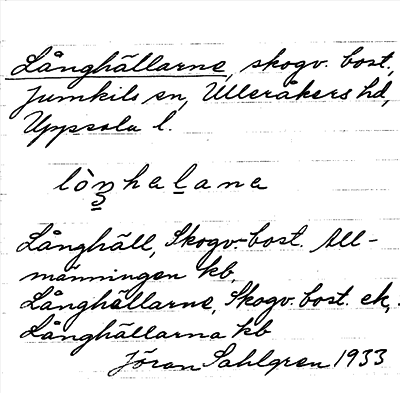 Långhällarne, skogv. bost.,
Jumkils sn, Ulleråkers hd,
Uppsala l.
lòŋhalana
Långhäll, Skogv.-bost. All-
männingen kb
Långhällarne, Skogv. bost. ek,
Långhällarna kb
Jöran Sahlgren 1933